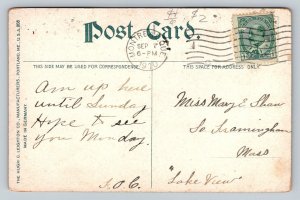 Post Card.
THIS SPACE MAY BE USED FOR CORRESPONDENCE.
THIS SPACE FOR ADDRESS ONLY.
THE HUGH C. LEIGHTON CO., MANUFACTURERS, PORTLAND, ME., U.S.A.
MADE IN GERMANY
SEP
6-PM
$2
Am up here
until Sunday
Hope to see
you Monday.
F.O.C.
Miss Mary E Shaw
So Framingham
Mass
"Lake View"